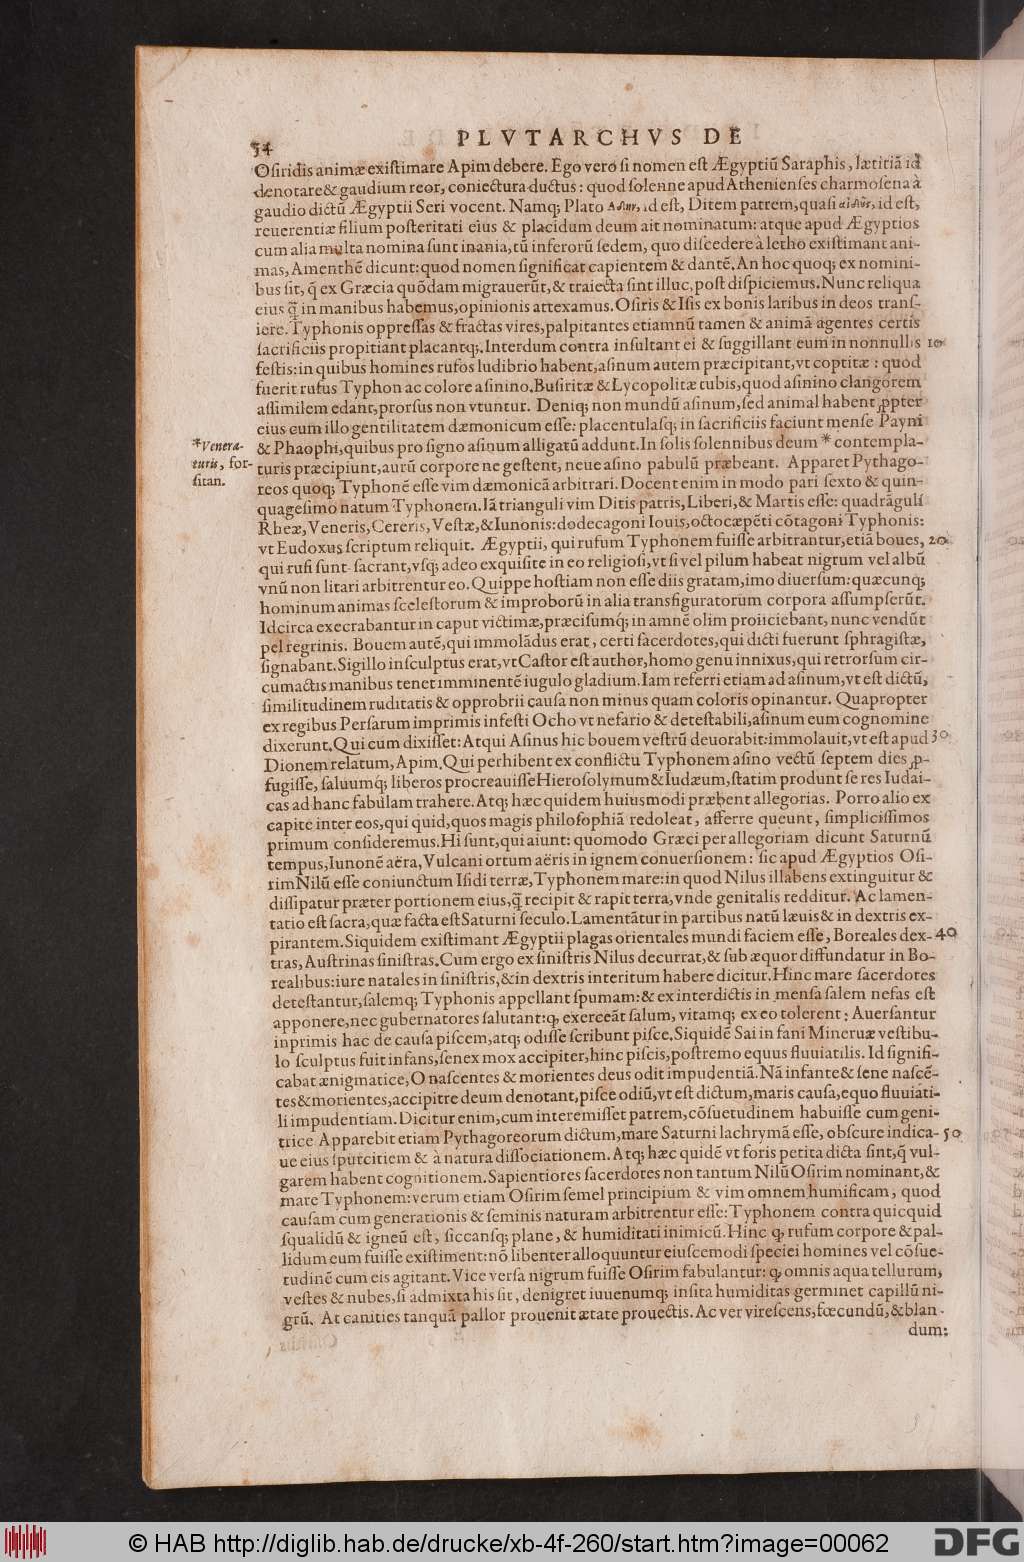 34 PLVTARCHVS DE
Oſiridis animæ exiſtimare Apim debere. Ego vero ſi nomen eſt Ægyptiũ Saraphis, lætitiã id
denotare & gaudium reor, coniectura ductus: quod ſolenne apud Athenienſes charmoſena à
gaudio dictũ Ægyptii Seri vocent. Namq; Plato id eſt, Ditem patrem, quaſi id eſt,
reuerentiæ filium poſteritati eius & placidum deum ait nominatum: atque apud Ægyptios
cum alia multa nomina ſunt inania, tũ inferorũ ſedem, quo diſcedere à letho exiſtimant ani-
mas, Amenthẽ dicunt: quod nomen ſignificat capientem & dantẽ. An hoc quoq; ex nomini-
bus ſit, q̃ ex Græcia quõdam migrauerũt, & traiecta ſint illuc, poſt diſpiciemus. Nunc reliqua
eius q̃ in manibus habemus, opinionis attexamus. Oſiris & Iſis ex bonis laribus in deos tranſ-
iere. Typhonis oppreſſas & fractas vires, palpitantes etiamnũ tamen & animã agentes certis
ſacrificiis propitiant placantq;. Interdum contra inſultant ei & ſuggillant eum in nonnullis 10
feſtis: in quibus homines rufos ludibrio habent, aſinum autem præcipitant, vt coptitæ: quod
fuerit rufus Typhon ac colore aſinino. Buſiritæ & Lycopolitæ tubis, quod aſinino clangorem
aſſimilem edant, prorſus non vtuntur. Deniq; non mundũ aſinum, ſed animal habent ꝓpter
eius eum illo gentilitatem dæmonicum eſſe: placentulaſq; in ſacrificiis faciunt menſe Payni
*Venera-
turis, for-
ſitan.
& Phaophi, quibus pro ſigno aſinum alligatũ addunt. In ſolis ſolennibus deum * contempla-
turis præcipiunt, aurũ corpore ne geſtent, neue aſino pabulũ præbeant. Apparet Pythago-
reos quoq; Typhonẽ eſſe vim dæmonicã arbitrari. Docent enim in modo pari ſexto & quin-
quageſimo natum Typhonem. Iã trianguli vim Ditis patris, Liberi, & Martis eſſe: quadrãguli
Rheæ, Veneris, Cereris, Veſtæ, & Iunonis: dodecagoni Iouis, octocæpẽti cõtagoni Typhonis:
vt Eudoxus ſcriptum reliquit. Ægyptii, qui rufum Typhonem fuiſſe arbitrantur, etiã boues, 20
qui rufi ſunt ſacrant, vſq; adeo exquiſite in eo religioſi, vt ſi vel pilum habeat nigrum vel albũ
vnũ non litari arbitrentur eo. Quippe hoſtiam non eſſe diis gratam, imo diuerſum: quæcunq;
hominum animas ſceleſtorum & improborũ in alia transfiguratorum corpora aſſumpſerũt.
Idcirca execrabantur in caput victimæ, præciſumq́; in amnẽ olim proiiciebant, nunc vendũt
pelregrinis. Bouem autẽ, qui immolãdus erat, certi ſacerdotes, qui dicti fuerunt ſphragiſtæ,
ſignabant. Sigillo inſculptus erat, vt Caſtor eſt author, homo genu innixus, qui retrorſum cir-
cumactis manibus tenet imminentẽ iugulo gladium. Iam referri etiam ad aſinum, vt eſt dictũ,
ſimilitudinem ruditatis & opprobrii cauſa non minus quam coloris opinantur. Quapropter
ex regibus Perſarum imprimis infeſti Ocho vt nefario & deteſtabili, aſinum eum cognomine
dixerunt. Qui cum dixiſſet: Atqui Aſinus hic bouem veſtrũ deuorabit: immolauit, vt eſt apud 30
Dionem relatum, Apim. Qui perhibent ex conflictu Typhonem aſino vectũ ſeptem dies ꝓ-
fugiſſe, ſaluumq́; liberos procreauiſſe Hieroſolymum & Iudæum, ſtatim produnt ſe res Iudai-
cas ad hanc fabulam trahere. Atq; hæc quidem huiusmodi præbent allegorias. Porro alio ex
capite inter eos, qui quid, quos magis philoſophiã redoleat, afferre queunt, ſimpliciſſimos
primum conſideremus. Hi ſunt, qui aiunt: quomodo Græci per allegoriam dicunt Saturnũ
tempus, Iunonẽ aëra, Vulcani ortum aëris in ignem conuerſionem: ſic apud Ægyptios Oſi-
rim Nilũ eſſe coniunctum Iſidi terræ, Typhonem mare: in quod Nilus illabens extinguitur &
diſſipatur præter portionem eius, q̃ recipit & rapit terra, vnde genitalis redditur. Ac lamen-
tatio eſt ſacra, quæ facta eſt Saturni ſeculo. Lamentãtur in partibus natũ læuis & in dextris ex-
pirantem. Siquidem exiſtimant Ægyptii plagas orientales mundi faciem eſſe, Boreales dex- 40
tras, Auſtrinas ſiniſtras. Cum ergo ex ſiniſtris Nilus decurrat, & ſub æquor diffundatur in Bo-
realibus: iure natales in ſiniſtris, & in dextris interitum habere dicitur. Hinc mare ſacerdotes
deteſtantur, ſalemq; Typhonis appellant ſpumam: & ex interdictis in menſa ſalem nefas eſt
apponere, nec gubernatores ſalutant: ꝙ exerceãt ſalum, vitamq; ex eo tolerent: Auerſantur
inprimis hac de cauſa piſcem, atq; odiſſe ſcribunt piſce. Siquidẽ Sai in fani Mineruæ veſtibu-
lo ſculptus fuit infans, ſenex mox accipiter, hinc piſcis, poſtremo equus fluuiatilis. Id ſignifi-
cabat ænigmatice, O naſcentes & morientes deus odit impudentiã. Nã infante & ſene naſcẽ-
tes & morientes, accipitre deum denotant, piſce odiũ, vt eſt dictum, maris cauſa, equo fluuiati-
li impudentiam. Dicitur enim, cum interemiſſet patrem, cõſuetudinem habuiſſe cum geni-
trice Apparebit etiam Pythagoreorum dictum, mare Saturni lachrymã eſſe, obſcure indica- 50
ue eius ſpurcitiem & à natura diſſociationem. Atq; hæc quidẽ vt foris petita dicta ſint, q̃ vul-
garem habent cognitionem. Sapientiores ſacerdotes non tantum Nilũ Oſirim nominant, &
mare Typhonem: verum etiam Oſirim ſemel principium & vim omnem humificam, quod
cauſam cum generationis & ſeminis naturam arbitrentur eſſe: Typhonem contra quicquid
ſqualidũ & igneũ eſt, ſiccanſq; plane, & humiditati inimicũ. Hinc ꝙ rufum corpore & pal-
lidum eum fuiſſe exiſtiment: nõ libenter alloquuntur eiuſcemodi ſpeciei homines vel cõſue-
tudinẽ cum eis agitant. Vice verſa nigrum fuiſſe Oſirim fabulantur: ꝙ omnis aqua tellurum,
veſtes & nubes, ſi admixta his ſit, denigret iuuenumq; inſita humiditas germinet capillũ ni-
grũ. At canities tanquã pallor prouenit ætate prouectis. Ac ver vireſcens, fœcundũ, & blan-
dum:
© HAB http://diglib.hab.de/drucke/xb-4f-260/start.htm?image=00062
DFG